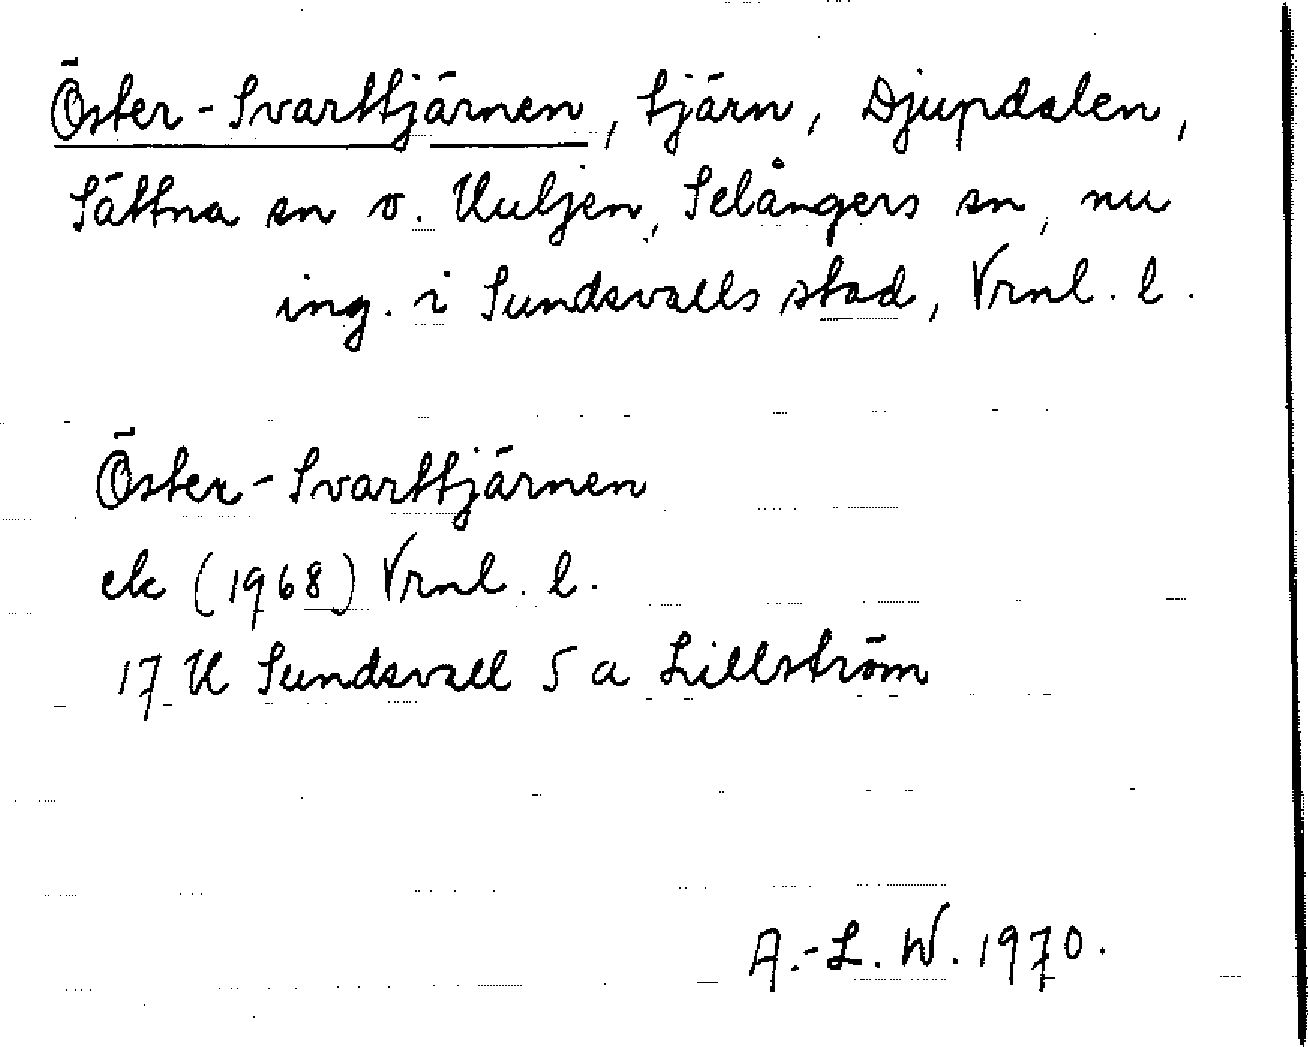 Öster-Svarttjärnen, tjärn, Djupdalen,
Sättna sn o. Kuljen, Selångers sn, nu
ing. i Sundsvalls stad, Vrnl. l.
Öster-Svarttjärnen
ek (1968) Vrnl. l.
17 H Sundsvall 5 a Lillström
A.-L. W. 1970.